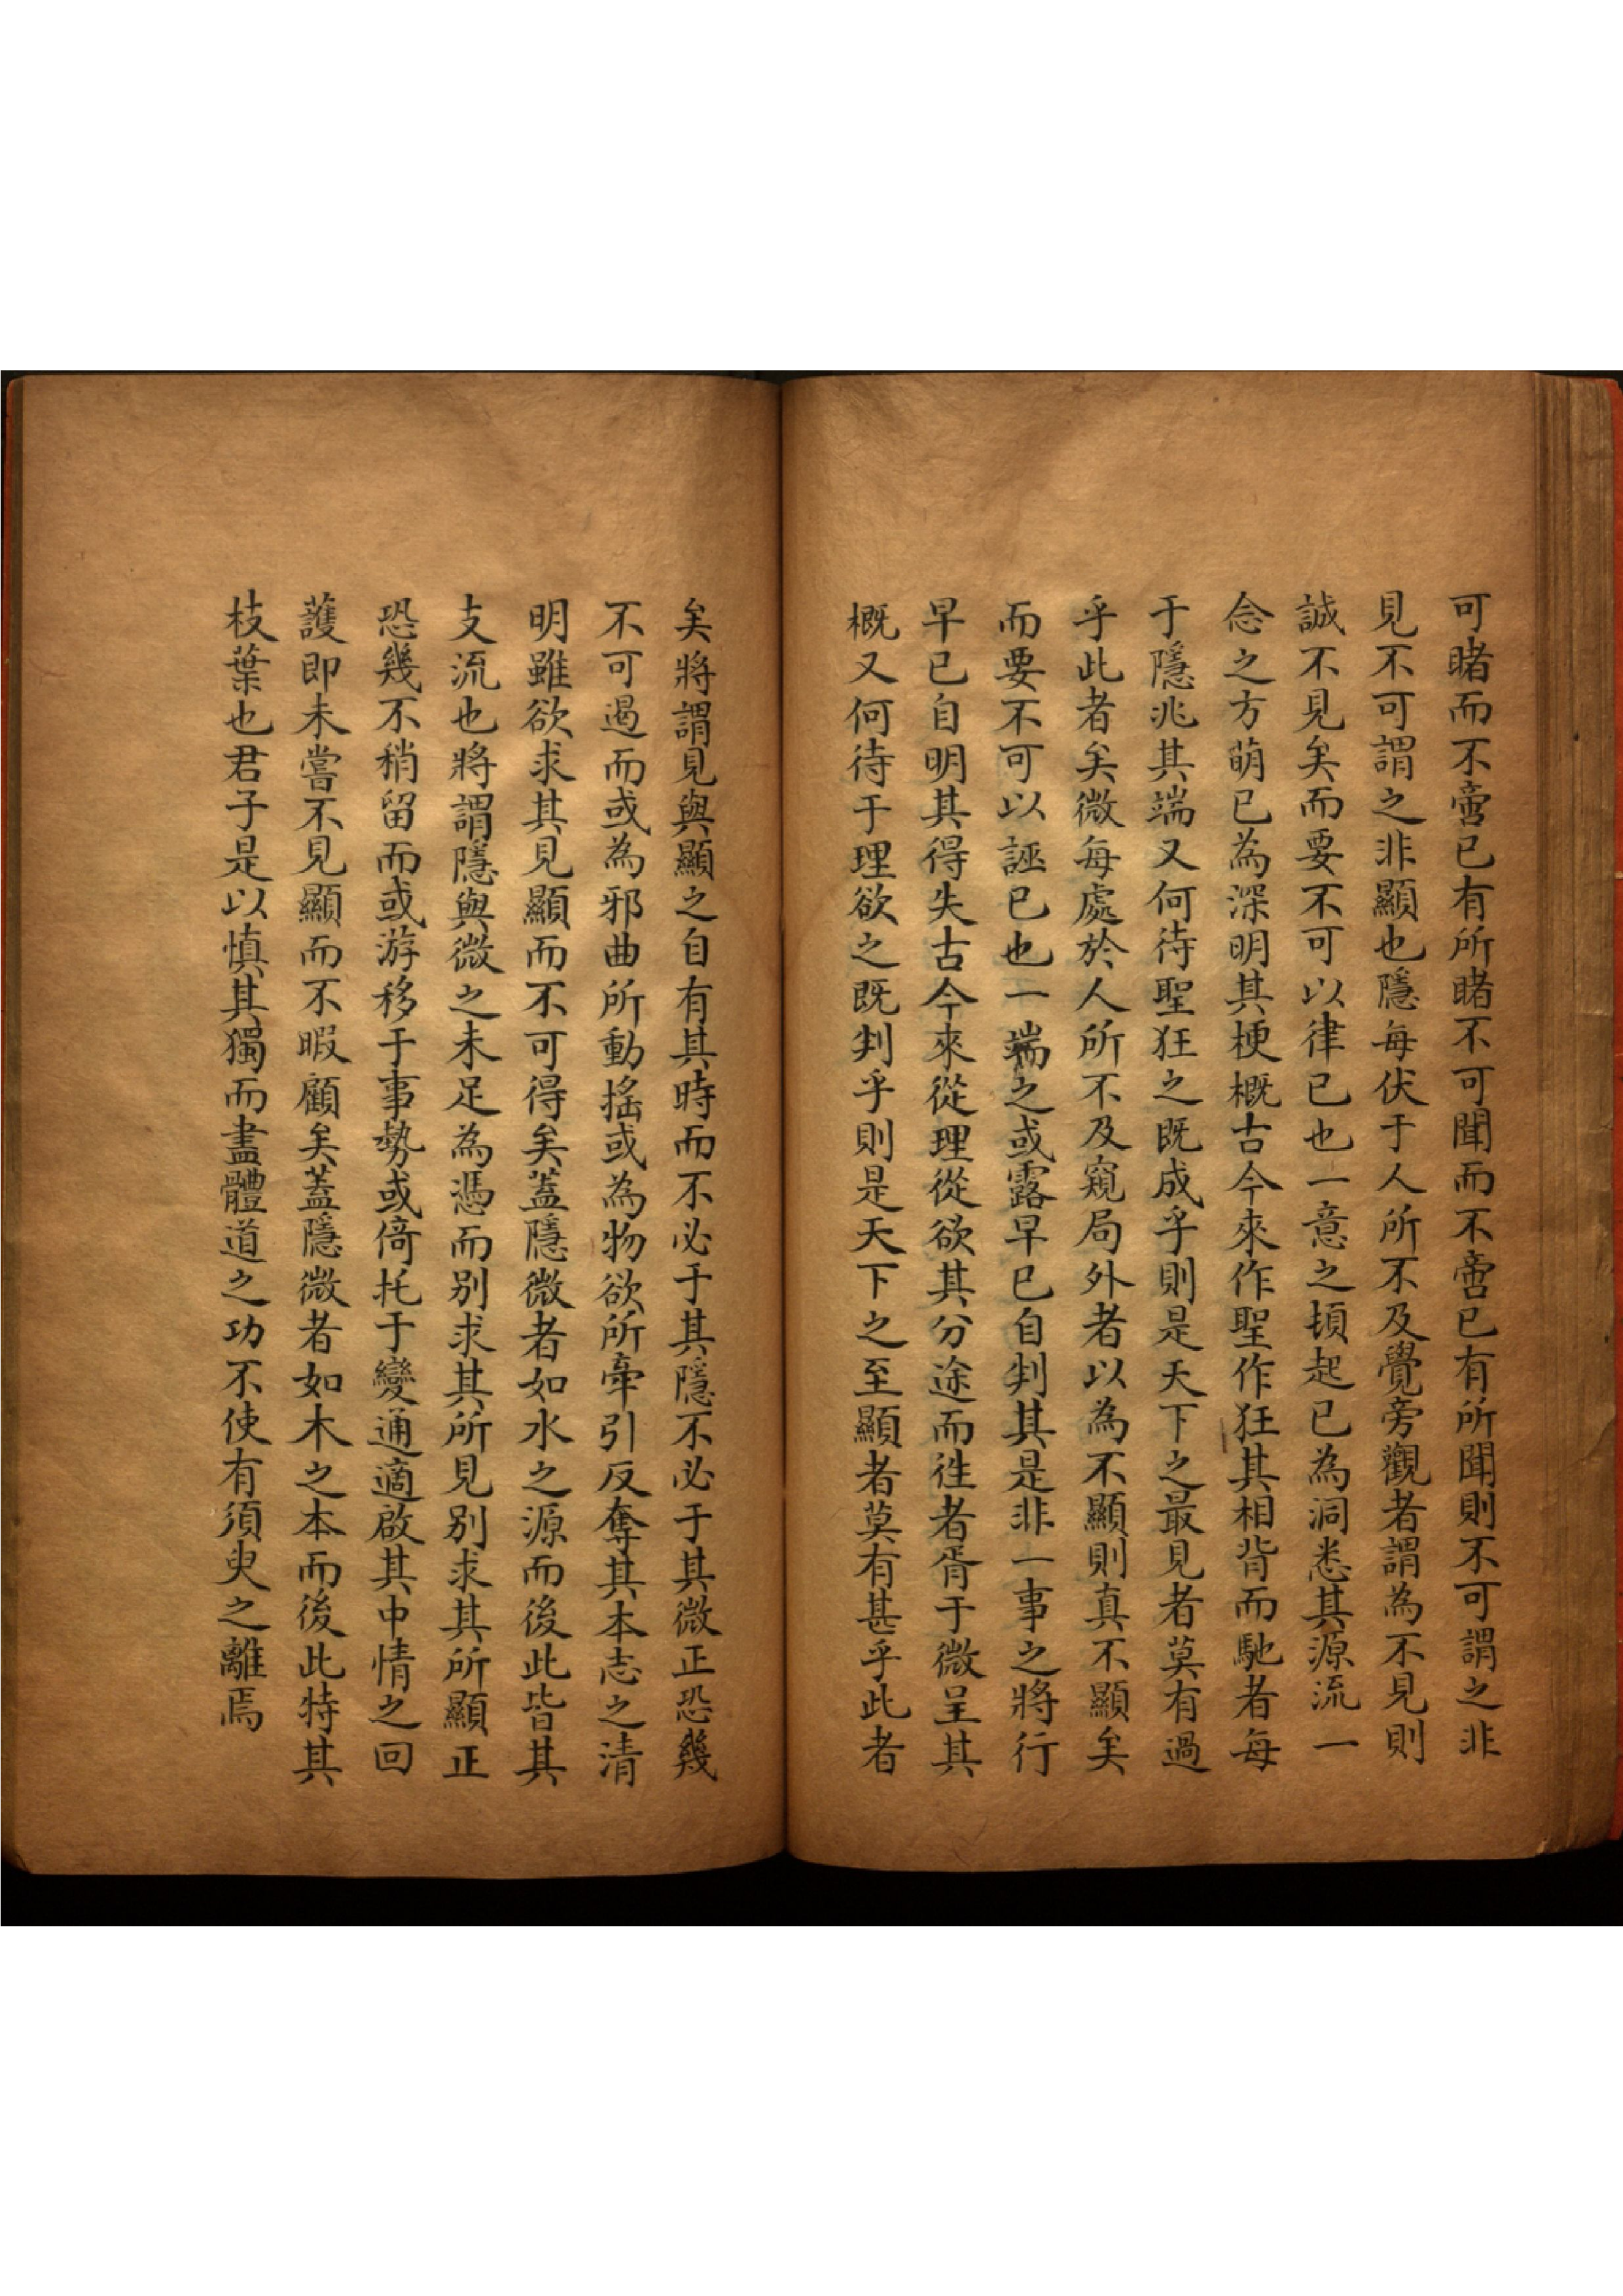 可睹而不啻已有所睹不可聞而不啻已有所聞則不可謂之非
見不可謂之非顯也隱每伏于人所不及覺旁觀者謂為不見則
誠不見矣而要不可以律已也一意之頓起已為洞悉其源流一
念之方萌已為深明其梗概古今來作聖作狂其相背而馳者每
于隱兆其端又何待聖狂之既成乎則是天下之最見者莫有過
乎此者矣微每處於人所不及窺局外者以為不顯則真不顯矣
而要不可以誣已也一端之或露早已自判其是非一事之將行
早已自明其得失古今來從理從欲其分途而徃者胥于微呈其
概又何待于理欲之既判乎則是天下之至顯者莫有甚乎此者
矣將謂見與顯之自有其時而不必于其隱不必于其微正恐幾
不可遏而或為邪曲所動搖或為物欲所牽引反奪其本志之清
明雖欲求其見顯而不可得矣蓋隱微者如水之源而後此皆其
支流也將謂隱與微之未足為憑而別求其所見別求其所顯正
恐幾不稍留而或游移于事勢或倚托于變通適啟其中情之回
護即未嘗不見顯而不暇顧矣蓋隱微者如木之本而後此特其
枝葉也君子是以慎其獨而盡體道之功不使有須臾之離焉